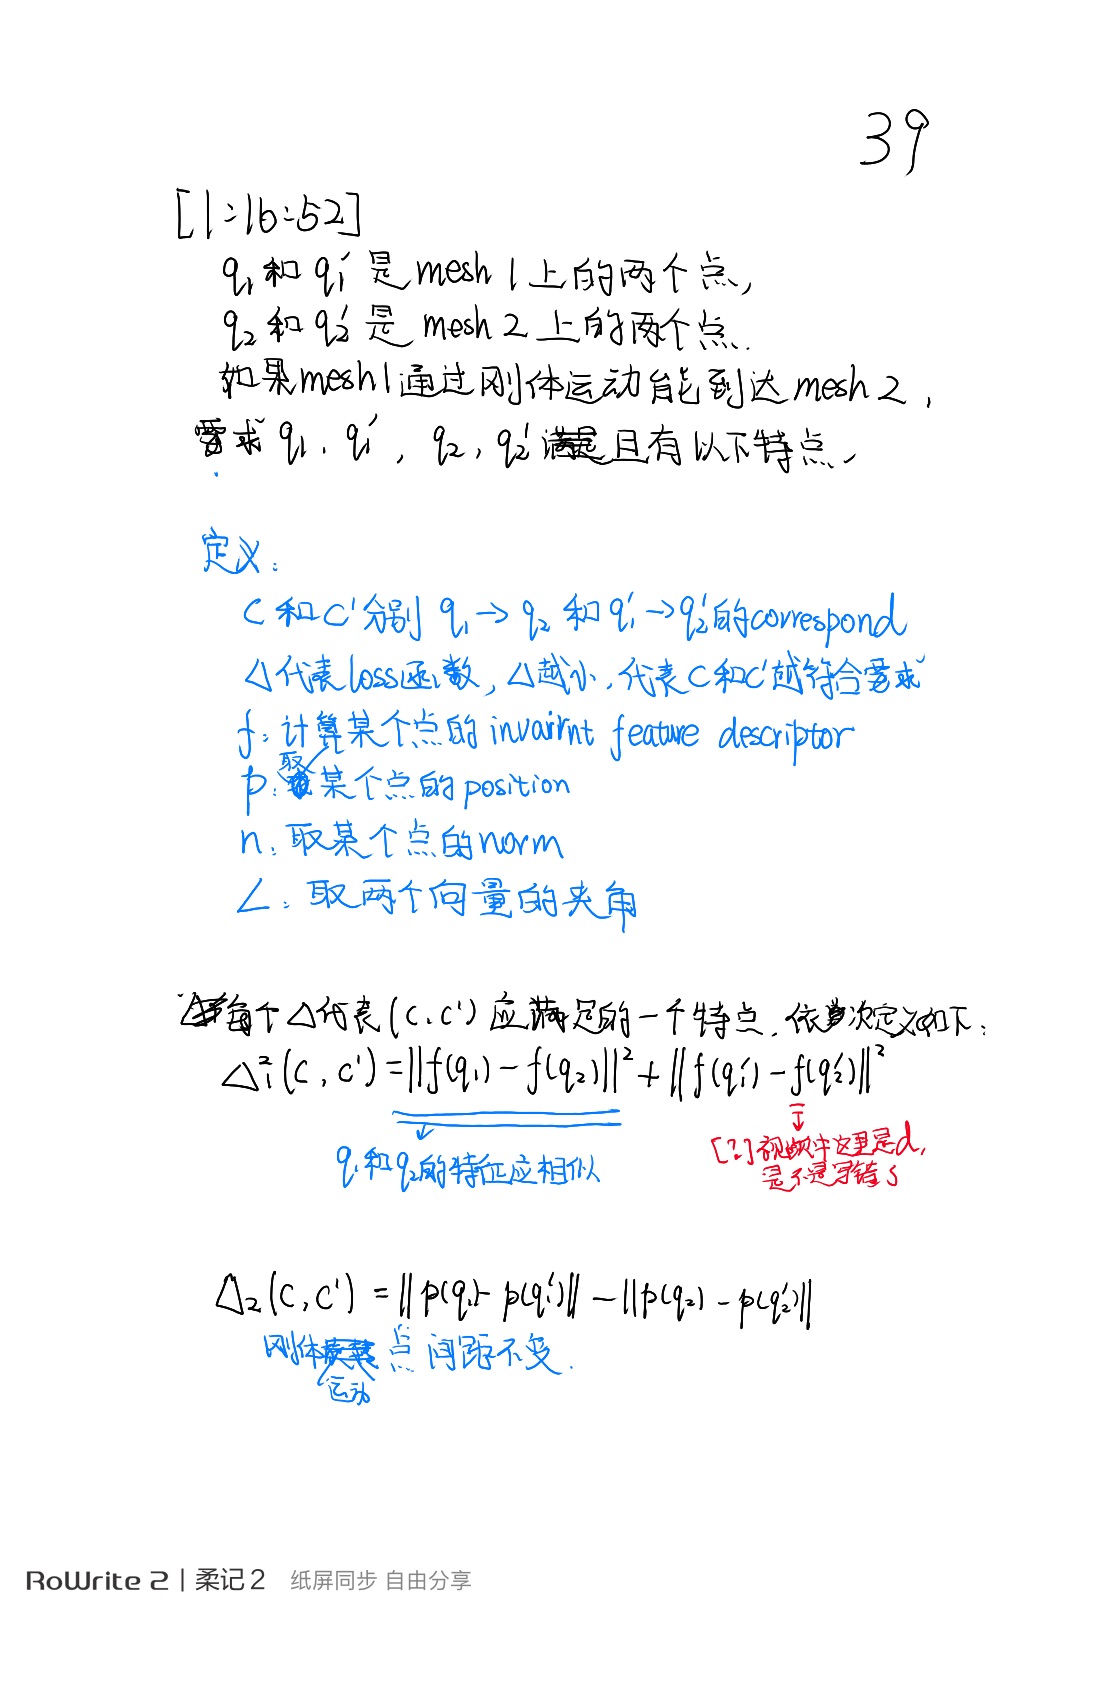 39
[1:16:52]
q₁和q₁′是mesh1上的两个点,
q₂和q₂′是mesh2上的两个点.
如果mesh1通过刚体运动能到达mesh2,
需求q₁,q₁′,q₂,q₂′满足且有以下特点,
定义:
C和C′分别q₁→q₂和q₁′→q₂′的correspond
△代表loss函数,△越小,代表C和C′越符合需求
f:计算某个点的invairnt feature descriptor
p:取某个点的position
n:取某个点的norm
∠:取两个向量的夹角
每个△代表(C,C′)应满足的一个特点,依次定义如下:
△₁²(C,C′)=||f(q₁)-f(q₂)||²+||f(q₁′)-f(q₂′)||²
q₁和q₂的特征应相似
[?]视频中这里是d,
是不是写错了
△₂(C,C′)=||p(q₁)-p(q₁′)||-||p(q₂)-p(q₂′)||
刚体运动点间距不变.
RoWrite 2 | 柔记2 纸屏同步 自由分享